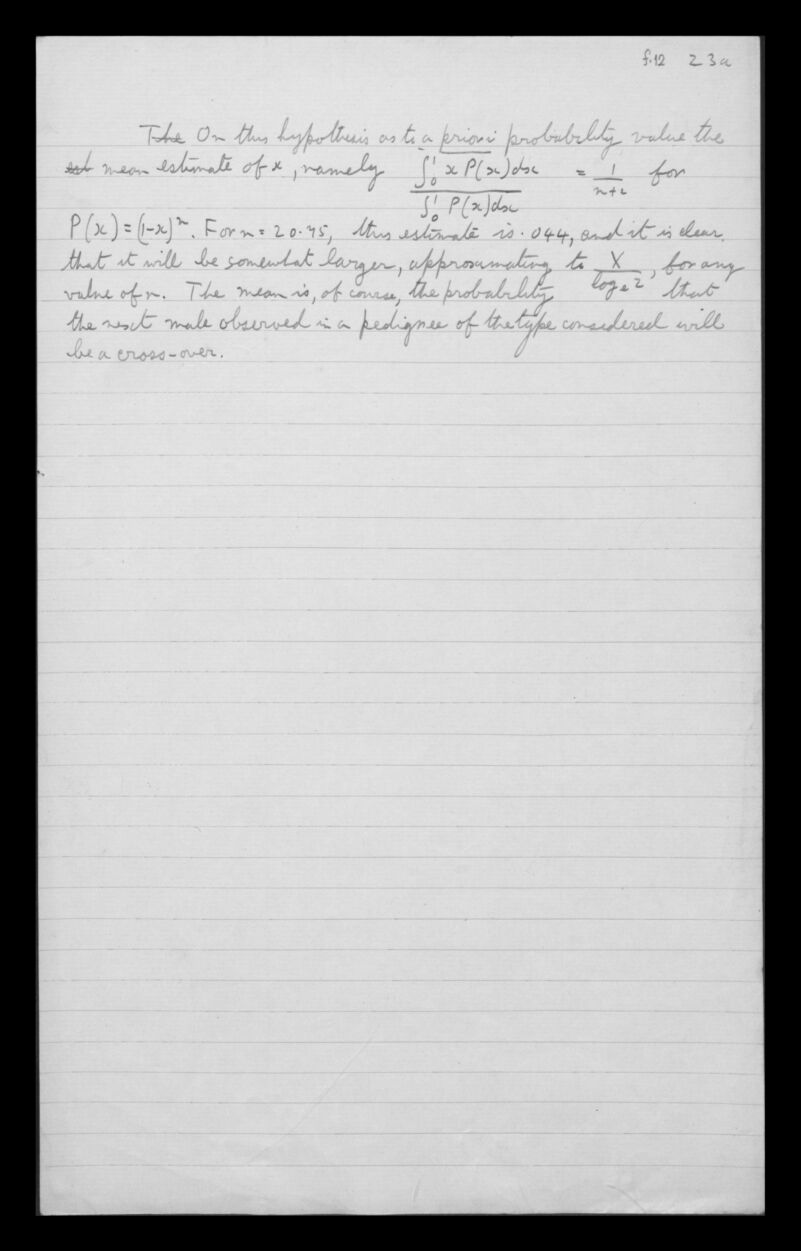 f.12 23a
The On this hypothesis as to a priori probability value the
est mean estimate of x, namely ∫₀¹ x P(x)dx / ∫₀¹ P(x)dx = 1/(n+2) for
P(x) = (1-x)ⁿ. For n = 20.75, this estimate is .044, and it is clear
that it will be somewhat larger, approximating to X/logₑ2, for any
value of n. The mean is, of course, the probability that
the next male observed in a pedigree of the type considered will
be a cross-over.